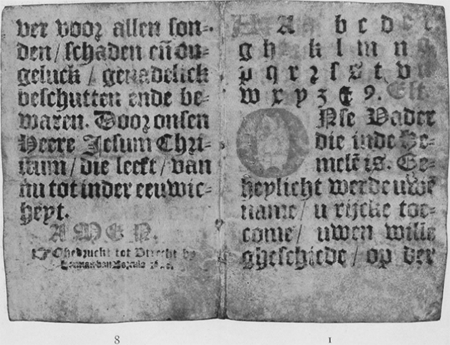 ver voor allen son-
den / schaden en̄ on-
geluck / genadelick
beschutten ende be-
waren. Door onsen
Heere Jesum Chri-
stum / die leeft / van
nu tot inder eeuwic-
heyt.
AMEN.
Ghedruckt tot Utrecht by
Herman van
A b c d e f
g h k l m n
p q r ꝛ ſ s t v u
w x p y z
ONse Vader
die inde he-
melē is. Ge-
heylicht werde uwē
name / u rijcke toe-
come / uwen wille
gheschiede / op der
8
1